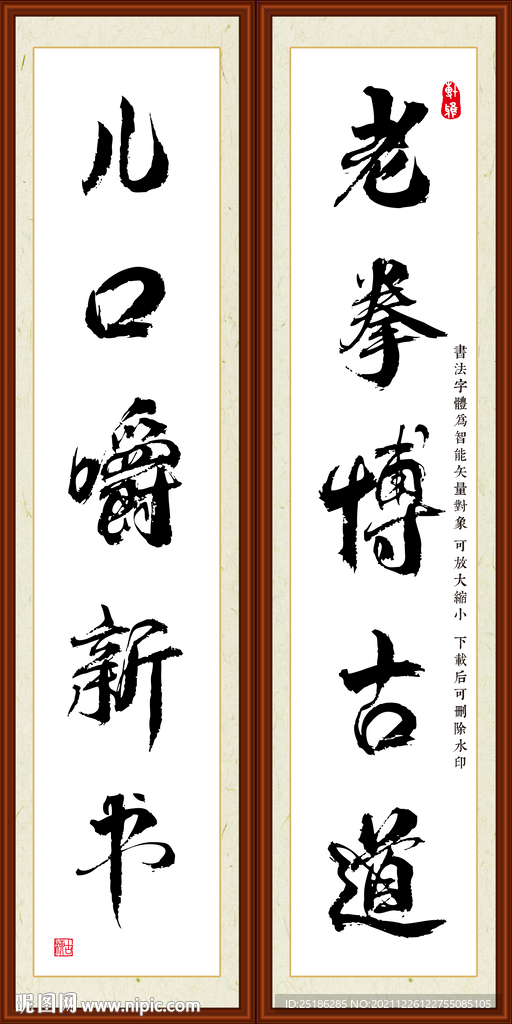 老拳博古道
儿口嚼新书
書法字體為智能矢量對象 可放大縮小 下載后可刪除水印
昵图网 www.nipic.com
ID:25186285 NO:20211226122755085105